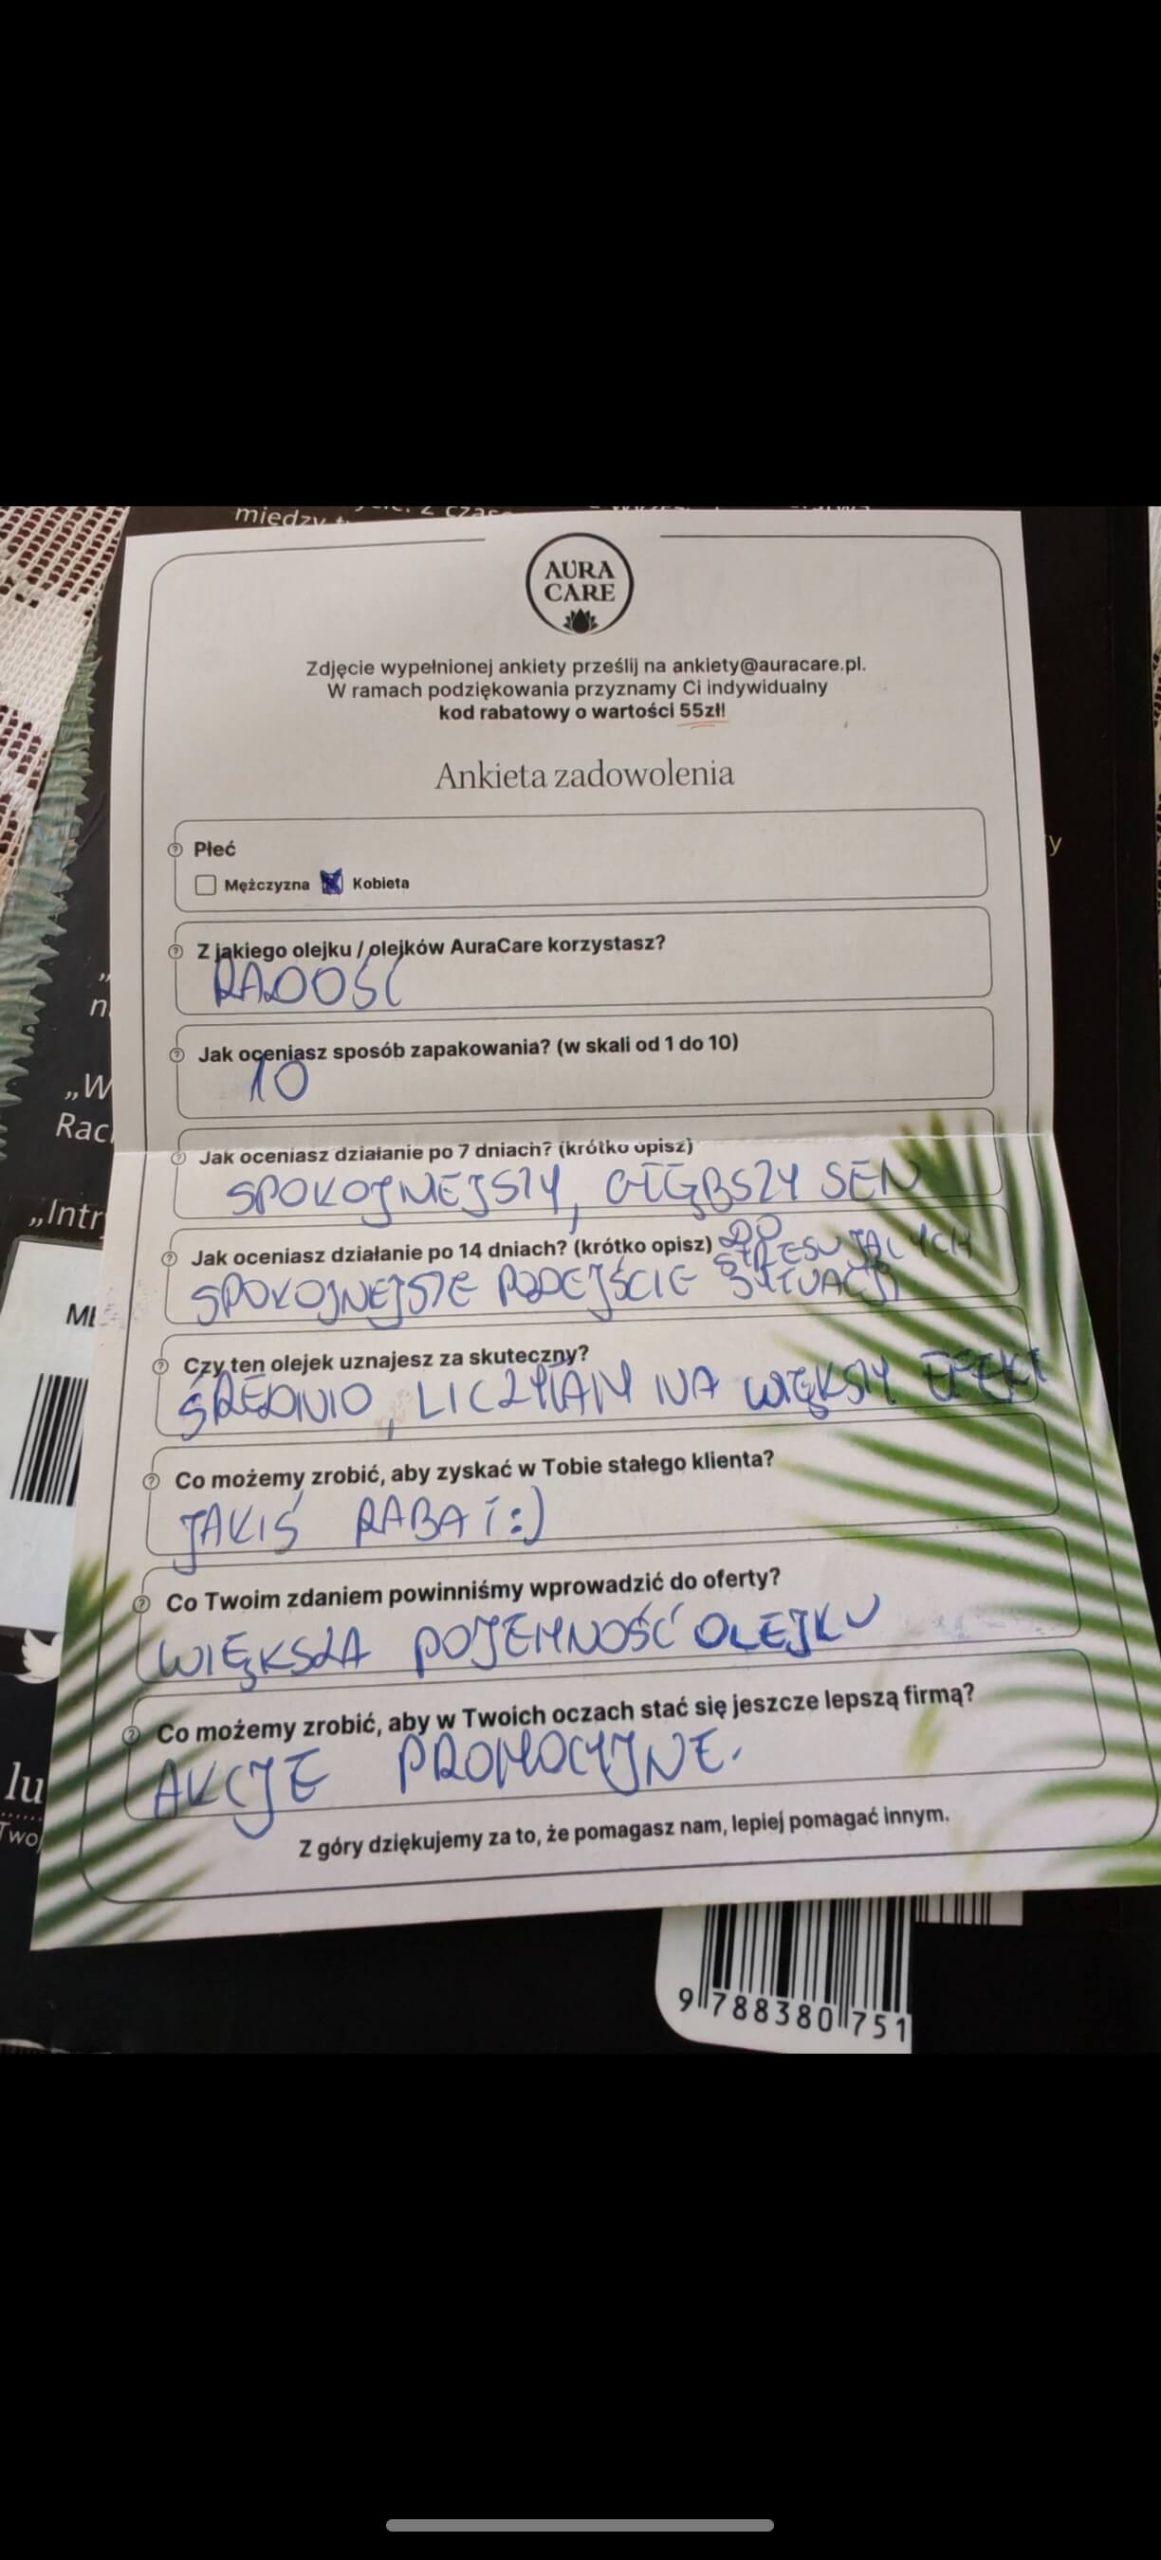 między
AURA
CARE
Zdjęcie wypełnionej ankiety prześlij na ankiety@auracare.pl.
W ramach podziękowania przyznamy Ci indywidualny
kod rabatowy o wartości 55zł!
Ankieta zadowolenia
Płeć
Mężczyzna Kobieta
Z jakiego olejku / olejków AuraCare korzystasz?
RADOŚĆ
Jak oceniasz sposób zapakowania? (w skali od 1 do 10)
10
„W
Rac
Jak oceniasz działanie po 7 dniach? (krótko opisz)
SPOKOJNIEJSZY, GŁĘBSZY SEN
„Intr
Jak oceniasz działanie po 14 dniach? (krótko opisz)
SPOKOJNEJSZE PODEJŚCIE DO STRESUJĄCYCH SYTUACJI
Czy ten olejek uznajesz za skuteczny?
ŚREDNIO, LICZYŁAM NA WIĘKSZY EFEKT
Co możemy zrobić, aby zyskać w Tobie stałego klienta?
JAKIŚ RABAT :)
Co Twoim zdaniem powinniśmy wprowadzić do oferty?
WIĘKSZA POJEMNOŚĆ OLEJKU
Co możemy zrobić, aby w Twoich oczach stać się jeszcze lepszą firmą?
AKCJE PROMOCYJNE.
lu
Two
Z góry dziękujemy za to, że pomagasz nam, lepiej pomagać innym.
9 788380 751